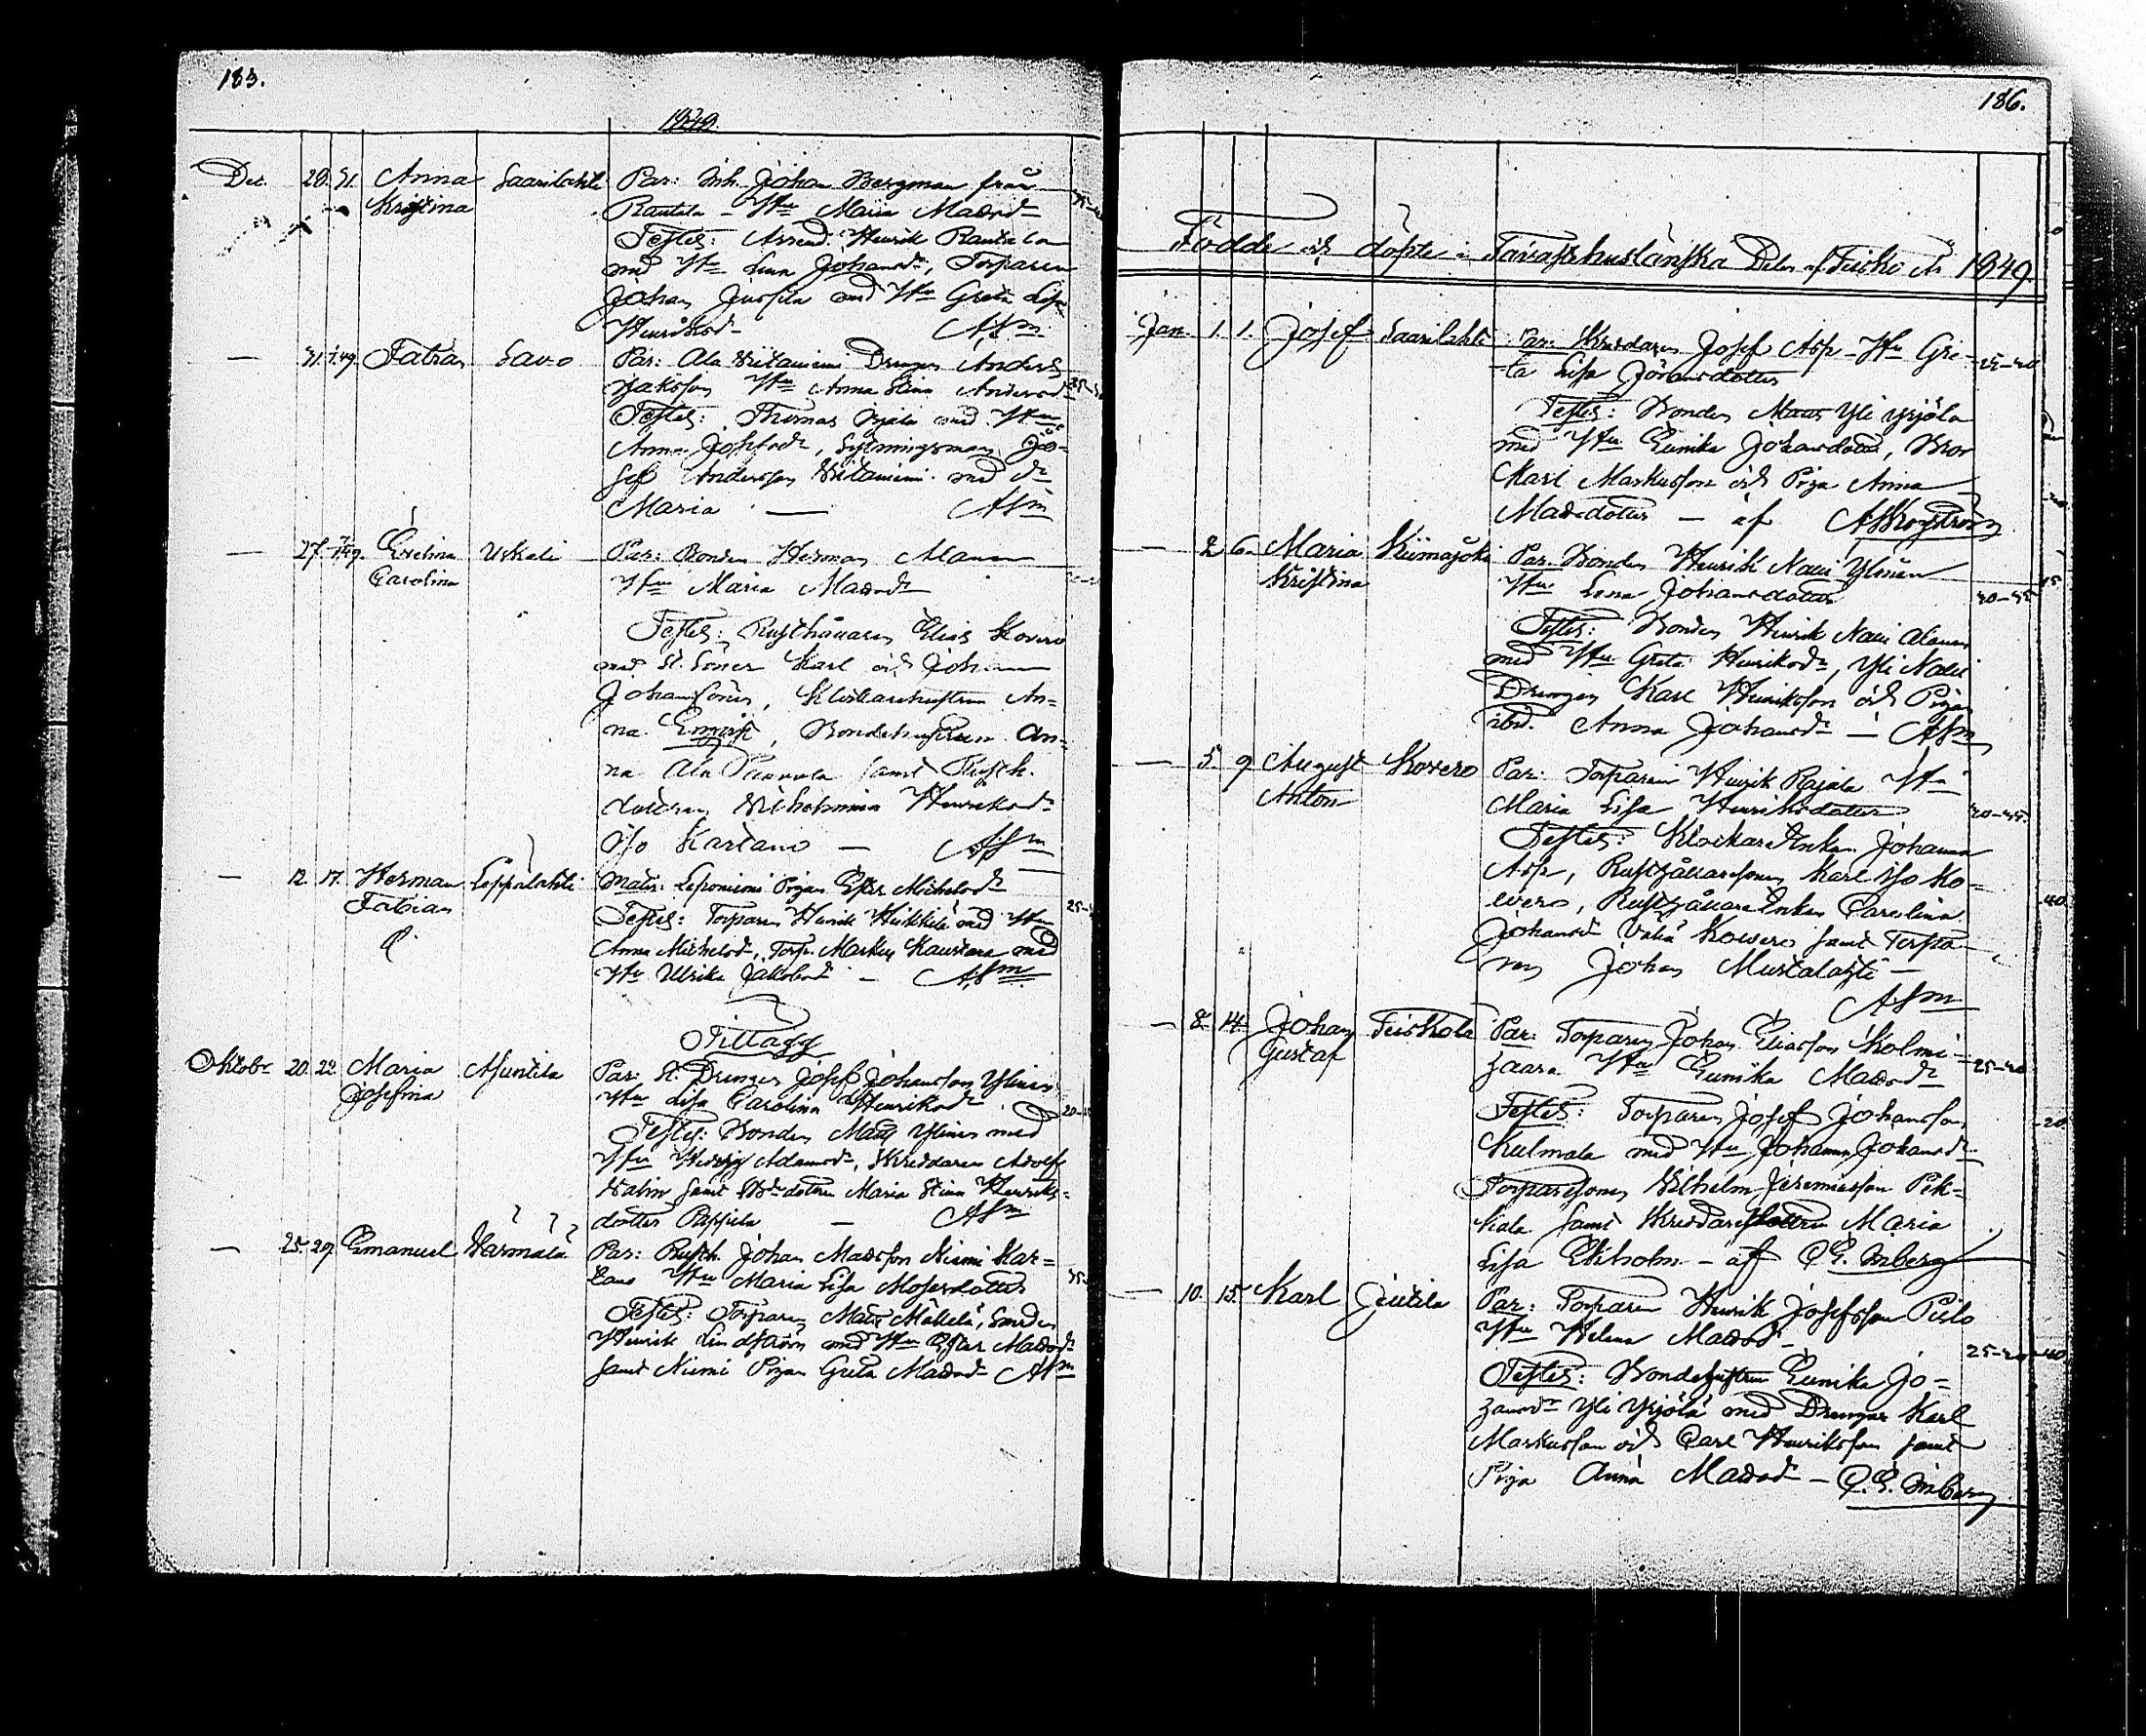 183.
1849.
Dec. 28. 31. Anna Saarilahti Par: Inh. Johan Bergman från
Kristina Rantala – Hu Maria Madsdr
Testes: Arrend. Henrik Rantala
med Hu Lena Johansdr, Torparen
Johan Jussila med Hu Greta Lisa
Henriksdr ASm
— 31. 1/1 49. Fabian Savo Par: Ala Drengen Anders
Jakosson Hu Anna Stina Andersdr
Testes: Thomas med Hu
Anna Josefsdr, Jo-
sef Andersson med dr
Maria — ASm
— 27. Evelina Uskali Par: Bonden Herman Alanen
Carolina Hu Maria Madsdr
Testes: Rusthållaren Elias Kovero
med St. Söner Karl och Johan
Johanssöner, Klockarehustrun An=
na, Bondehustrun An=
na Ala Paavola samt Rusth.
dottren Vilhelmina Henriksdr
Iso Kartano — ASm
— 12. 17. Herman Leppälahti Mater: Pigan Ester Michelsdr
Fabian Testes: Torparen Henrik Heikkilä med Hu
Anna Michelsdr, Torp. Markus Kaurara med
Hu Ulrika Jakobsdr – ASm
Tillägg
Oktobr 20. 22. Maria Asuntila Par: St. Drengen Josef Johansson Ylinen
Josefina Hu Lisa Carolina Henriksdr 20-25
Testes: Bonden Mats Ylinen med
Hu Hedvig Adamsdr, Skreddaren Adolf
samt dottren Maria Stina Henriks=
dotter Pappila — ASm
— 25. 29. Emanuel Värmälä Par: Rusth. Johan Madsson Niemi Kar=
tano Hu Maria Lisa Mosesdotter
Testes: Torparen Mats Mäkelä, Smeden
Henrik Lindström med Hu Ester Madsdr
samt Niemi Pigan Greta Madsdr ASm
186.
Födde och döpte i Tavastehuslänska Delen af Teisko År 1849.
Jan. 1. 1. Josef Saarilahti Par: Skreddaren Josef Asp – Hu Gre-
ta Lisa Johansdotter 25–30
Testes: Bonden Mats Yli Yrjölä
med Hu Eunika Johansdotter, Bror
Karl Markusson och Piga Anna
Madsdotter — af A Skogström
— 2. 6. Maria Kiimajoki Par: Bonden Henrik Navi Ylinen
Kristina Hu Lena Johansdotter 30–35
Testes: Bonden Henrik Navi Alanen
med Hu Greta Henriksdr, Yli Navi
Drengen Karl Henriksson och Pigan
ibid. Anna Johansdr — ASm
— 5. 9. August Kovero Par: Torparen Henrik Rajala Hu
Anton Maria Lisa Henriksdotter 30–35
Testes: Klockare Enkan Johanna
Asp, Rusthållaresonen Karl Iso Ko-
vero, Rusthållare Enkan Carolina
Johansdr Vähä Kovero samt Torpa-
ren Johan Mustalahti —
ASm
— 8. 14. Johan Teiskola Par: Torparen Johan Eliasson Kolmi-
Gustaf haara Hu Eunika Madsdr 25–30
Testes: Torparen Josef Johansson
Kulmala med Hu Johanna Johansdr
Torparesonen Vilhelm Jeremiasson Pek=
kala samt Skreddaredottren Maria
Lisa Ekholm – af C E. Inberg
— 10. 15. Karl Jutila Par: Torparen Henrik Josefsson Pilo
Hu Helena Madsdr – 25–30
Testes: Bondehustrun Eunika Jo=
hansdr Yli Yrjölä med Drengar Karl
Markusson och Carl Henriksson samt
Piga Anna Madsdr — C. E. Inberg